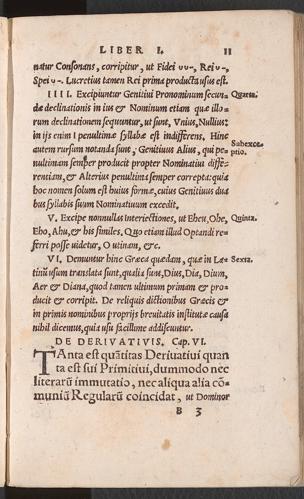 LIBER I. 11
natur Consonans, corripitur, ut Fidei ᴗᴗ-, Rei ᴗ-,
Spei ᴗ-. Lucretius tamen Rei prima producta usus est.
IIII. Excipiuntur Genitiui Pronominum secun-
dæ declinationis in ius & Nominum etiam quæ illo-
rum declinationem sequuntur, ut sunt, Vnius, Nullius:
in ijs enim i penultimæ syllabæ est indifferens. Hinc
autem rursum notanda sunt, Genitiuus Alius, qui pe-
nultimam semper producit propter Nominatiui diffe-
rentiam, & Alterius penultima semper correpta: quia
hoc nomen solum est huius formæ, cuius Genitiuus dua
bus syllabis suum Nominatiuum excedit.
V. Excipe nonnullas interiectiones, ut Eheu, Ohe,
Eho, Ahu, & his similes. Quo etiam illud Optandi re-
ferri posse uidetur, O utinam, &c.
VI. Demuntur hinc Græca quædam, quæ in La-
tinū usum translata sunt, qualia sunt, Dius, Dia, Dium,
Aer & Diana, quod tamen ultimum primam et pro-
ducit & corripit. De reliquis dictionibus Græcis &
in primis nominibus proprijs breuitatis institutæ causa
nihil dicemus, quia usu facillime addiscuntur.
DE DERIVATIVIS. Cap. VI.
TAnta est quātitas Deriuatiui quan
ta est sui Primitiui, dummodo nec
literarū immutatio, nec aliqua alia cō-
muniū Regularū coincidat, ut Dominor
B 3
Quarta.
Subexce-
ptio.
Quinta.
Sexta.